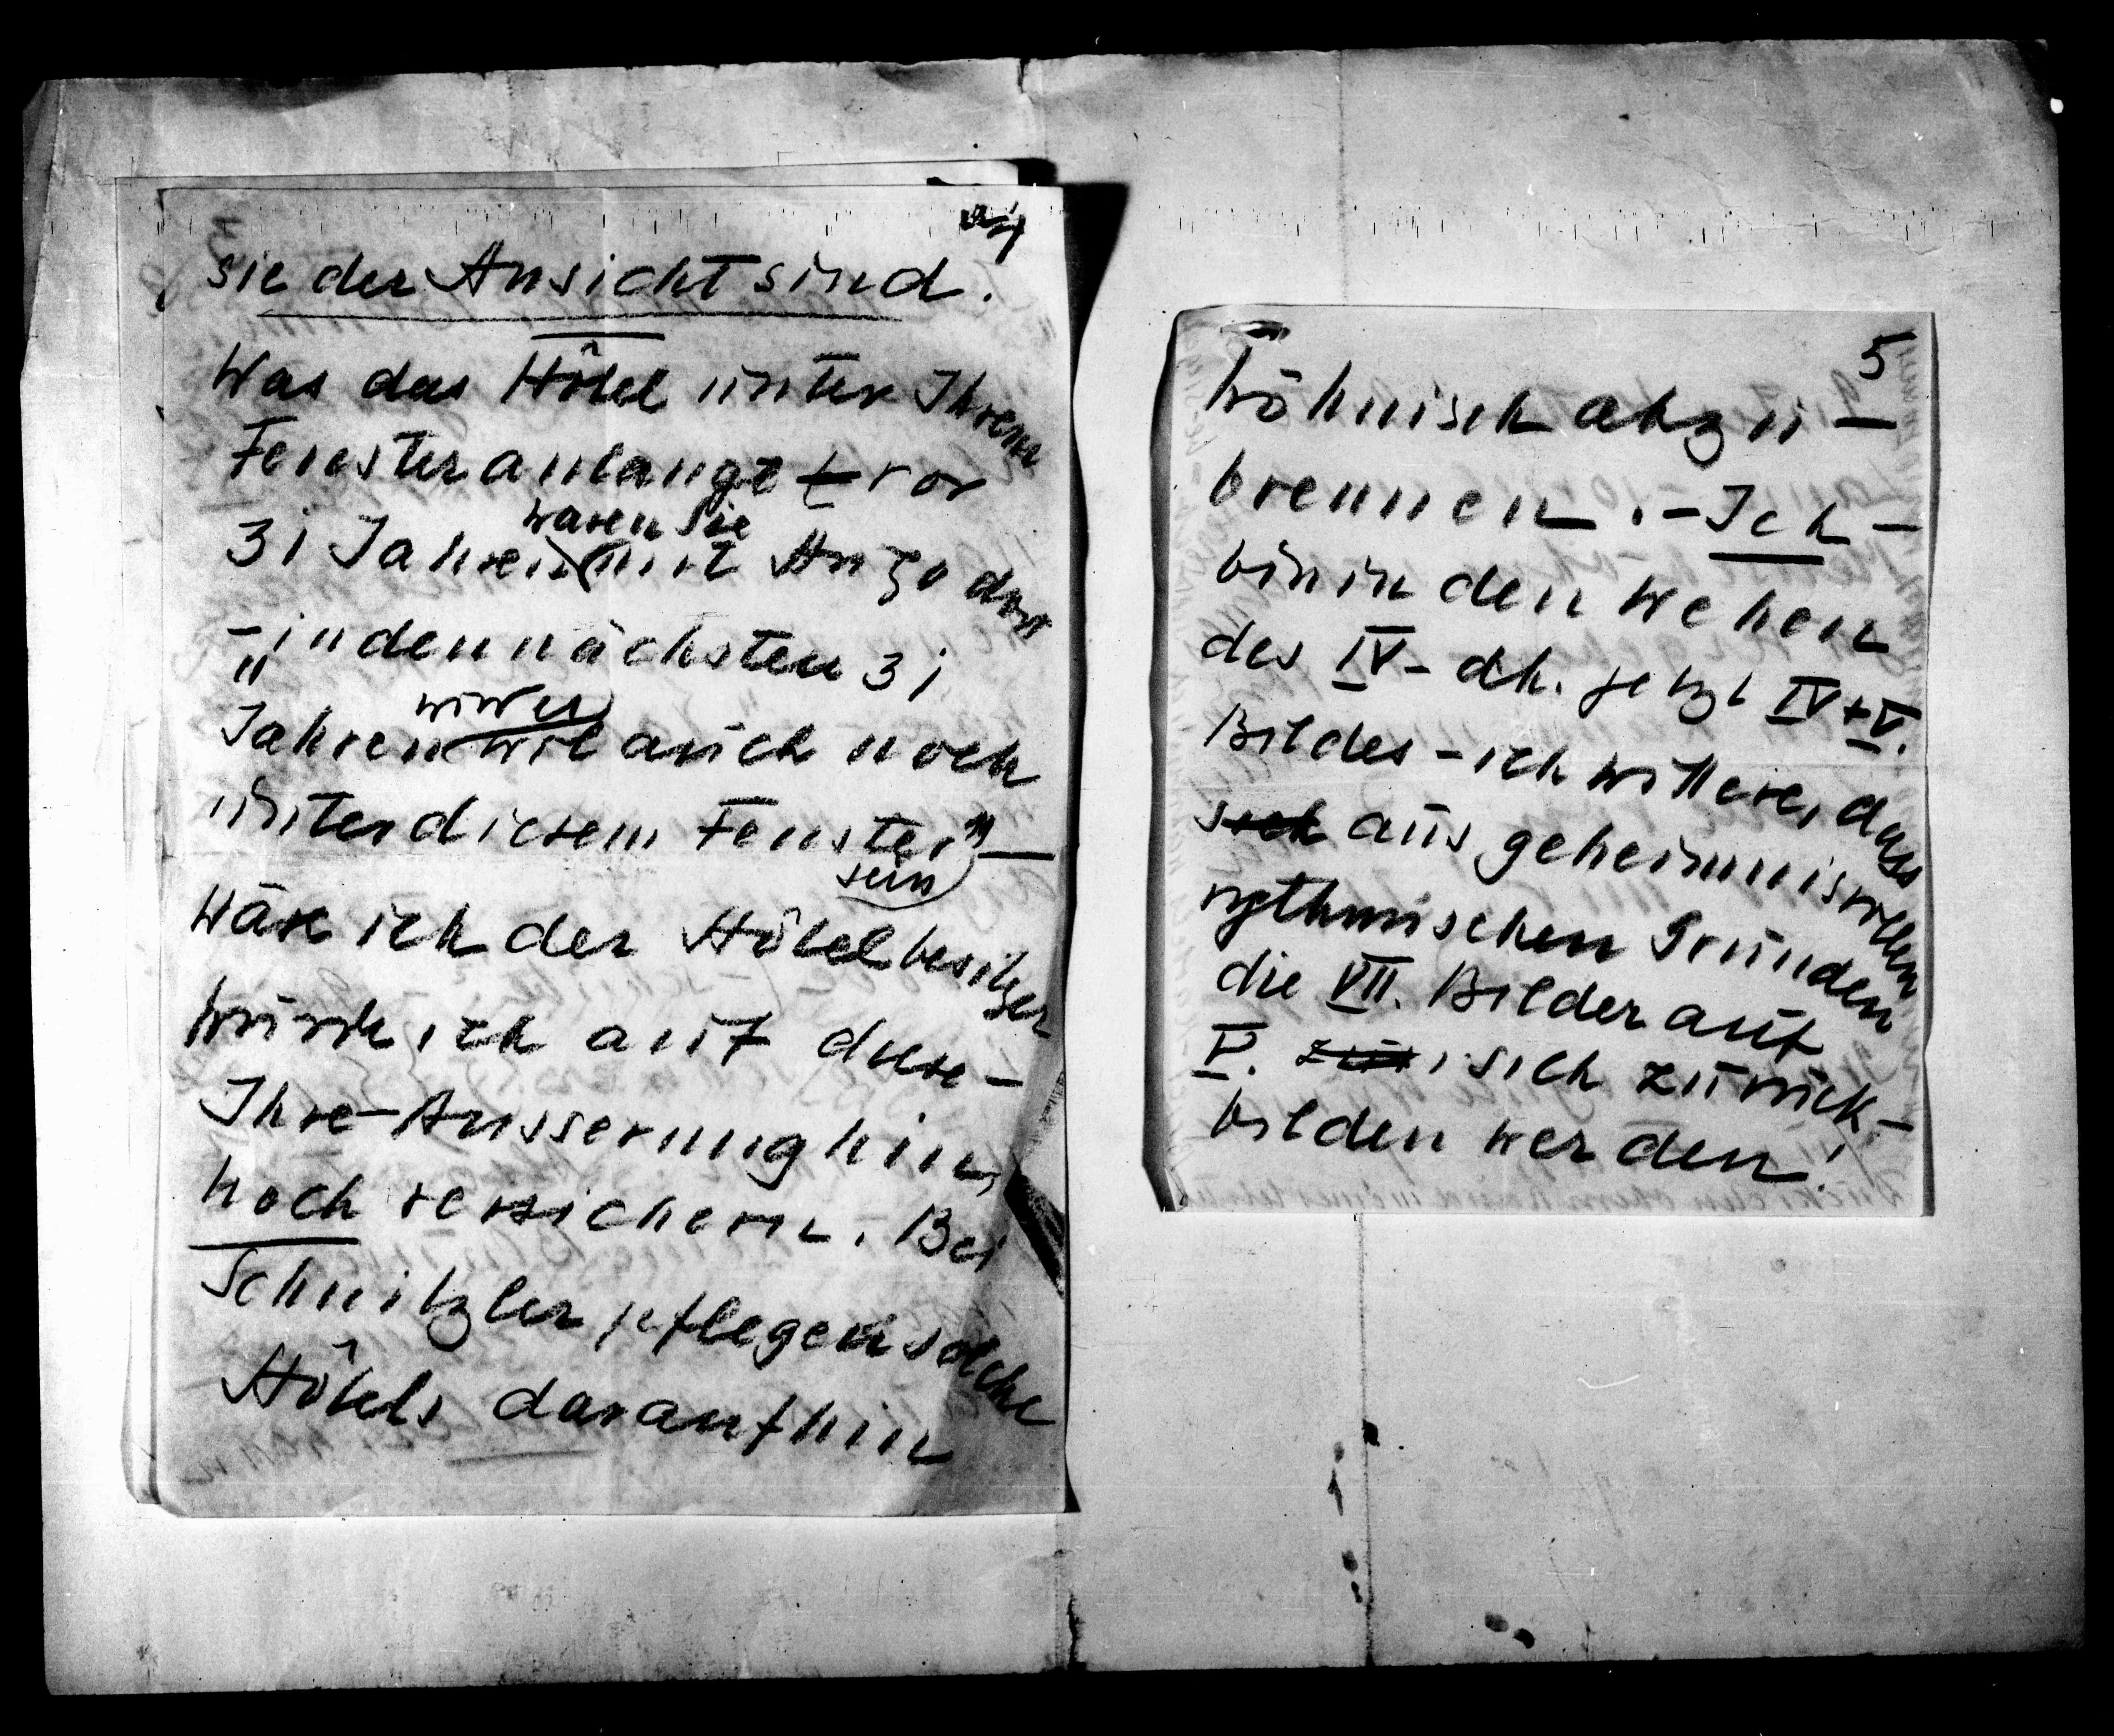 4
sie der Ansicht sind.
Was das Hôtel unter Ihrem
Fenster anlangt vor
waren Sie
31 Jahren mit Hugo dort
– „in den nächsten 31
wir
Jahren auch noch
unter diesem Fenster" –
sein
Wäre ich der Hôtelbesitzer
würde ich auf diese –
Ihre Äusserung hin,
hoch versichern. Bei
Schnitzler pflegen solche
Hôtels daraufhin
5
höhnisch abzu –
brennen. – Ich –
bin in den Wehen
des IV – dh. jetzt IV + V.
Bildes – ich wittere, dass
sich aus geheimnisvollen
rythmischen Gründen
die VII. Bilder auf
V. zu sich zurück –
bilden werden!